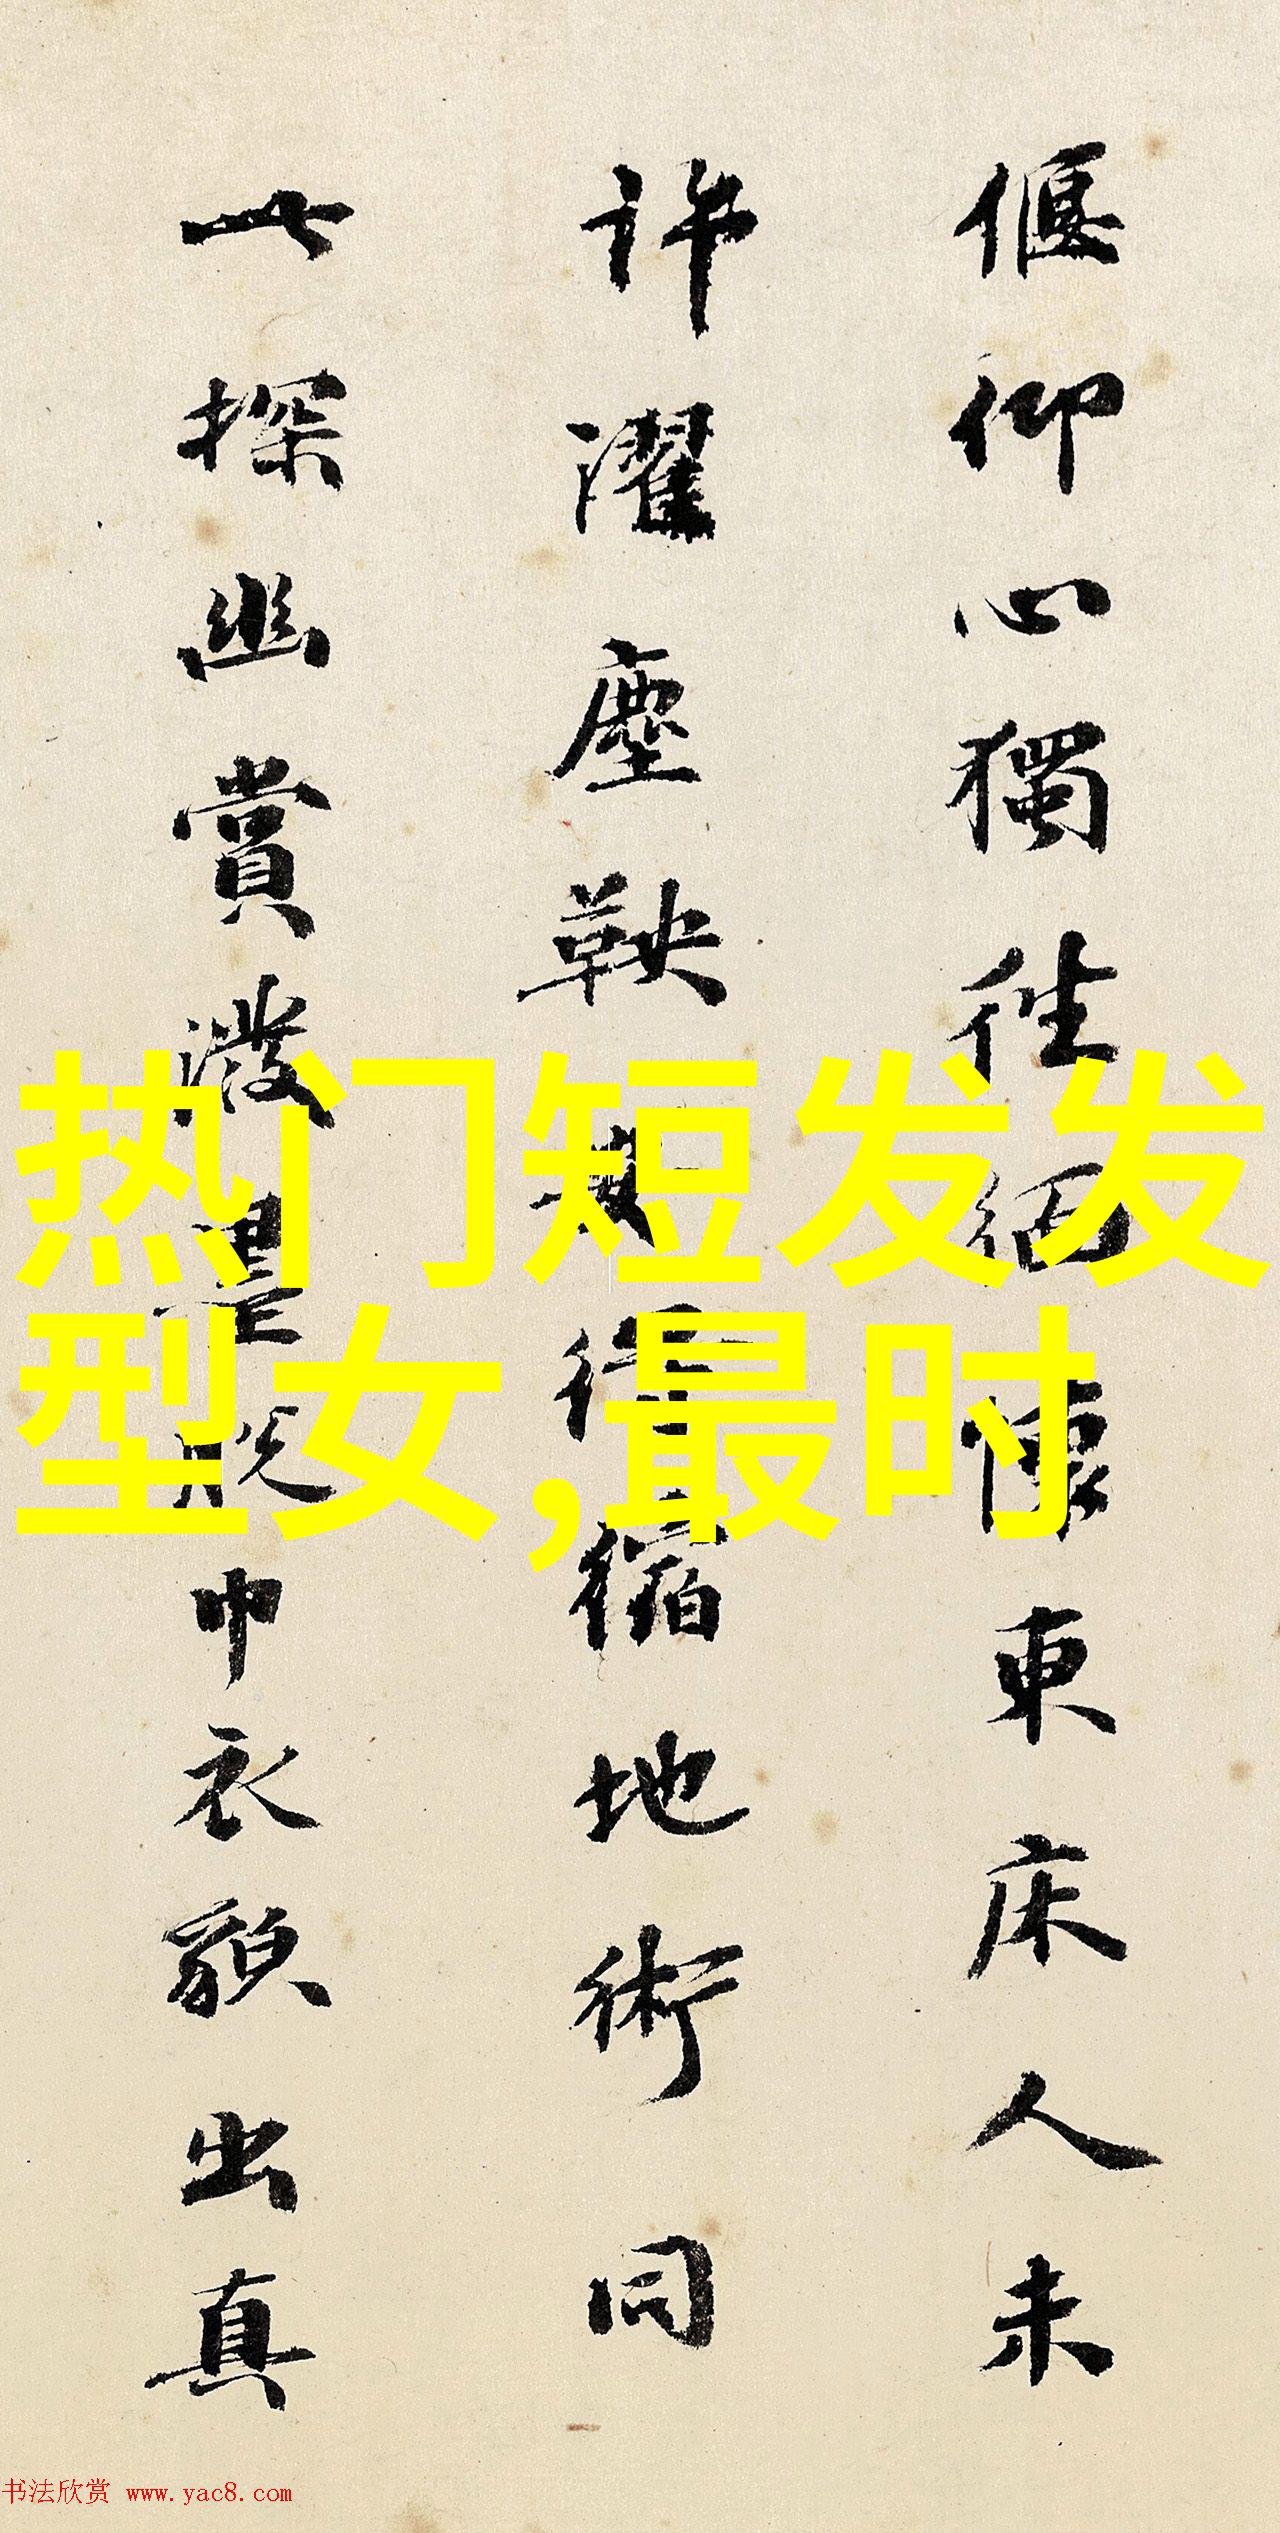 偃仰心獨往緬懷東床人未
許濯塵鞅 得縮地術同
此探幽賞潑墨脱巾衣貌出真
热门短发发
型女,最时
书法欣赏 www.yac8.com